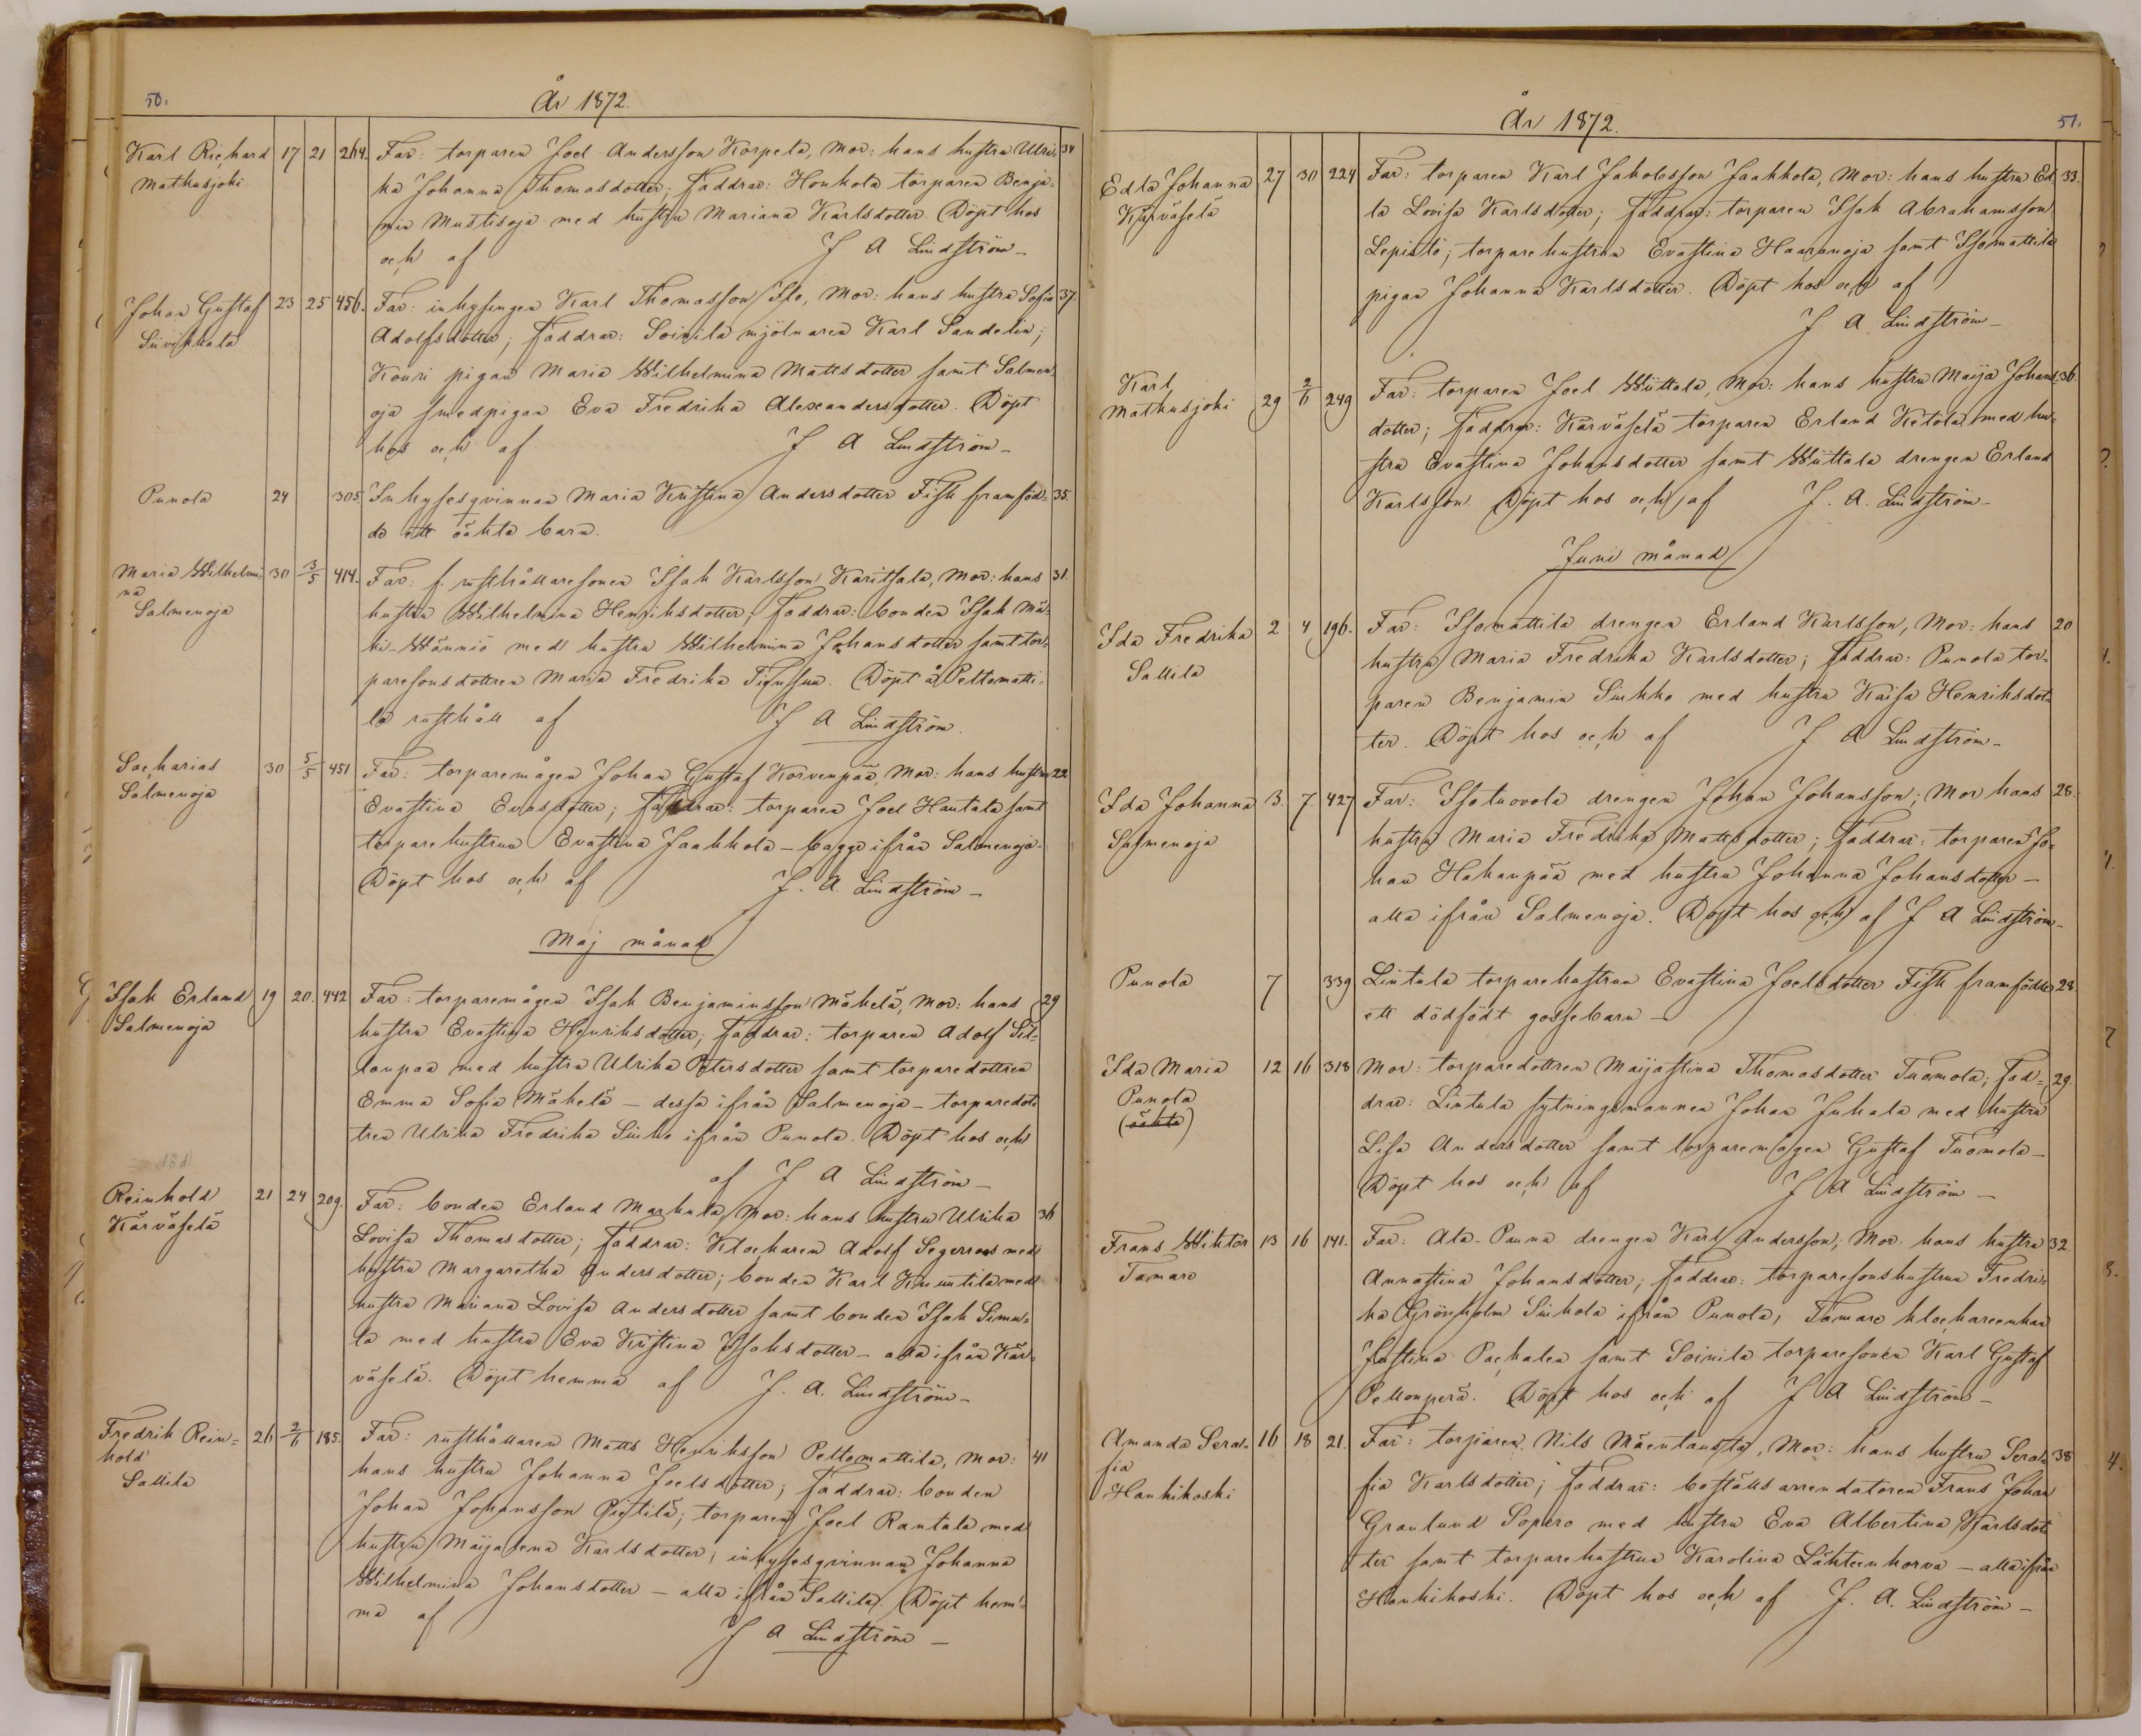 50.
År 1872.
Karl Richard 17 21 264. Far: torparen Joel Andersson Korpela, Mor: hans hustru Ulri= 34
Mathusjoki ka Johanna Thomasdotter; Faddrar: Honkola torparen Benja=
min Mustisoja med hustru Mariana Karlsdotter. Döpt hos
och af J A Lindström –
Johan Gustaf 23 25 456. Far: inhysingen Karl Thomasson Iso, Mor: hans hustru Sofia 37.
Adolfsdotter; Faddrar: Soinila mjölnaren Karl Sandelin;
Kouri pigan Maria Wilhelmina Mattsdotter samt Salmen=
oja smedpigan Eva Fredrika Alexandersdotter. Döpt
hos och af J A Lindström –
Punola 24 305 Inhysesqvinnan Maria Kristina Andersdotter Fisk framföd= 35.
de ett oäkta barn.
Maria Wilhelmi= 30 3/5 414. Far: f. rusthållaresonen Isak Karlsson Karitsala, Mor: hans 31.
na hustru Wilhelmina Henriksdotter; Faddrar: bonden Isak Mä=
Salmenoja ki-Männiö med hustru Wilhelmina Johansdotter samt tor=
paresonsdottren Maria Fredrika. Döpt å Peltomatti=
la rusthåll af J A Lindström.
Sacharias 30 5/5 451 Far: torparemågen Johan Gustaf Korvenpää, Mor: hans hustru 22
Salmenoja Evastina Evasdotter; Faddrar: torparen Joel Hautala samt
torparehustrun Evastina Jaakkola – bägge ifrån Salmenoja.
Döpt hos och af J. A. Lindström –
Maj månad
Isak Erland 19 20. 442 Far: torparemågen Isak Benjaminsson Mäkelä, Mor: hans 29
Salmenoja hustru Evastina Henriksdotter; Faddrar: torparen Adolf Sil=
lanpää med hustru Ulrika Petersdotter samt torparedottren
Emma Sofia Mäkelä – dessa ifrån Salmenoja – torparedot=
tren Ulrika Fredrika Sinko ifrån Punola. Döpt hos och
af J A Lindström –
död
Reinhold 21 24 209. Far: bonden Erland Markula, Mor: hans hustru Ulrika 36
Kärväselä Lovisa Thomasdotter; Faddrar: Klockaren Adolf Segerroos med
hustru Margaretha Andersdotter; bonden Karl Knuutila med
hustru Mariana Lovisa Andersdotter samt bonden Isak Simu=
la med hustru Eva Kristina Isaksdotter – alla ifrån Kär=
väselä. Döpt hemma af J. A. Lindström –
Fredrik Rein= 26 2/6 185. Far: rusthållaren Matts Henriksson Peltomattila, Mor: 41
hold hans hustru Johanna Joelsdotter; Faddrar: bonden
Sallila Johan Johansson Pietilä; torparen Joel Rantala med
hustru Maijalena Karlsdotter; inhysesqvinnan Johanna
Wilhelmina Johansdotter – alla ifrån Sallila. Döpt hem=
ma af J A Lindström –
År 1872. 51.
Edla Johanna 27 30 224 Far: torparen Karl Jakobsson Jaakkola, Mor: hans hustru Ed= 33.
Kärväselä la Lovisa Karlsdotter; Faddrar: torparen Isak Abrahamsson
Lepistö; torparehustrun Evastina Haaranoja samt Isomattila
pigan Johanna Karlsdotter. Döpt hos och af
J A. Lindström –
Karl 29 2/6 249 Far: torparen Joel Wiittala, Mor: hans hustru Maija Johans= 36
Mathusjoki dotter; Faddrar: Kärväselä torparen Erland Ketola med hu=
stru Evastina Johansdotter samt Wiittala drengen Erland
Karlsson. Döpt hos och af J. A. Lindström –
Juni månad
Ida Fredrika 2 4 196. Far: Isomattila drengen Erland Karlsson, Mor: hans 20
Sallila hustru Maria Fredrika Karlsdotter; Faddrar: Punola tor=
paren Benjamin Sinkko med hustru Kaisa Henriksdot=
ter. Döpt hos och af J A Lindström –
Ida Johanna 3. 7 427 Far: Isotuovola drengen Johan Johansson; Mor hans 28.
Salmenoja hustru Maria Fredrika Mattsdotter; Faddrar: torparen Jo=
han Hakanpää med hustru Johanna Johansdotter –
alla ifrån Salmenoja. Döpt hos och af J A Lindström –
Punola 7 339 Lintula torparehustrun Evastina Joelsdotter Fisk framfödde 28
ett dödfödt gossebarn –
Ida Maria 12 16 318 Mor: torparedottren Maijastina Thomasdotter Tuomola; Fad= 29.
Punola drar: Lintula sytningsmannen Johan Juhala med hustru
(oäkta) Lisa Andersdotter samt torparemågen Gustaf Tuomola –
Döpt hos och af J A Lindström –
Frans Wiktor 13 16 141. Far: Ala-Panna drengen Karl Andersson; Mor: hans hustru 32.
Tamare Annastina Johansdotter; Faddrar: torparesonshustrun Fredri=
ka Grönholm Sinkola ifrån Punola; Tamare klockareenkan
Justina Pachalen samt Soinila torparesonen Karl Gustaf
Peltonperä. Döpt hos och af J A Lindström –
Amanda Sera= 16 18 21. Far: torparen Nils Mäentausta, Mor: hans hustru Sera= 38
fia fia Karlsdotter; Faddrar: boställsarrendatoren Frans Johan
Hankikoski Granlund Sopero med hustru Eva Albertina Karlsdot
ter samt torparehustrun Karolina Lähteenkorva – alla ifrån
Hankikoski. Döpt hos och af J. A. Lindström –